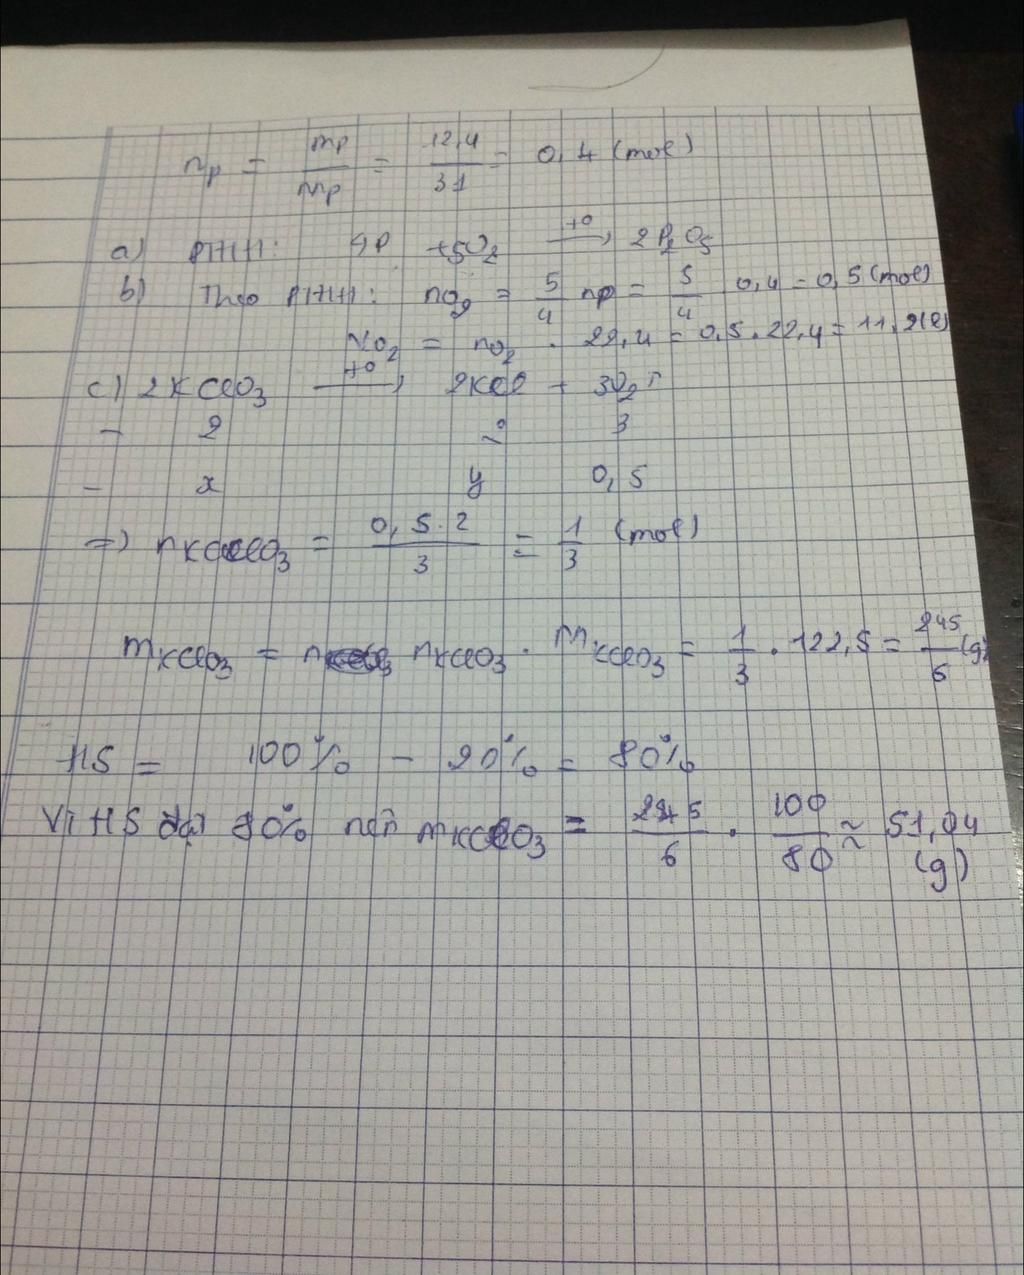 nP = mP/MP = 12,4/31 = 0,4 (mol)
a) PTHH: 4P + 5O2 →(t°) 2P2O5
b) Theo PTHH: nO2 = 5/4 nP = 5/4 . 0,4 = 0,5 (mol)
VO2 = nO2 . 22,4 = 0,5 . 22,4 = 11,2 (l)
c) 2KClO3 →(t°) 2KCl + 3O2↑
– 2 2 3
– x y 0,5
=> nKClO3 = 0,5.2/3 = 1/3 (mol)
mKClO3 = nKClO3 . MKClO3 = 1/3 . 122,5 = 245/6 (g)
HS = 100% – 20% = 80%
Vì HS đạt 80% nên mKClO3 = 245/6 . 100/80 ≈ 51,04
(g)